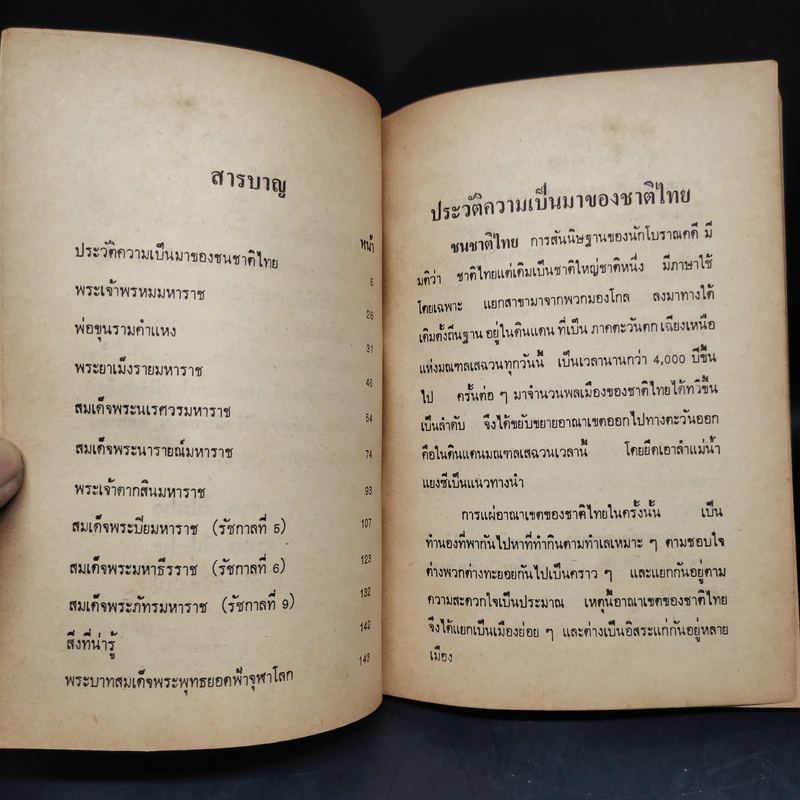 สารบาญ
หน้า
ประวัติความเป็นมาของชนชาติไทย 5
พระเจ้าพรหมมหาราช 28
พ่อขุนรามคำแหง 31
พระยาเม็งรายมหาราช 46
สมเด็จพระนเรศวรมหาราช 54
สมเด็จพระนารายณ์มหาราช 74
พระเจ้าตากสินมหาราช 93
สมเด็จพระปิยมหาราช (รัชกาลที่ 5) 107
สมเด็จพระมหาธีรราช (รัชกาลที่ 6) 123
สมเด็จพระภัทรมหาราช (รัชกาลที่ 9) 132
สิ่งที่น่ารู้ 142
พระบาทสมเด็จพระพุทธยอดฟ้าจุฬาโลก 143
ประวัติความเป็นมาของชาติไทย
ชนชาติไทย การสันนิษฐานของนักโบราณคดี มี
มติว่า ชาติไทยแต่เดิมเป็นชาติใหญ่ชาติหนึ่ง มีภาษาใช้
โดยเฉพาะ แยกสาขามาจากพวกมองโกล ลงมาทางใต้
เดิมตั้งถิ่นฐาน อยู่ในดินแดน ที่เป็น ภาคตะวันตก เฉียงเหนือ
แห่งมณฑลเสฉวนทุกวันนี้ เป็นเวลานานกว่า 4,000 ปีขึ้น
ไป ครั้นต่อ ๆ มาจำนวนพลเมืองของชาติไทยได้ทวีขึ้น
เป็นลำดับ จึงได้ขยับขยายอาณาเขตออกไปทางตะวันออก
คือในดินแดนมณฑลเสฉวนเวลานี้ โดยยึดเอาลำแม่น้ำ
แยงซีเป็นแนวทางนำ
การแผ่อาณาเขตของชาติไทยในครั้งนั้น เป็น
ทำนองที่พากันไปหาที่ทำกินตามทำเลเหมาะ ๆ ตามชอบใจ
ต่างพวกต่างทะยอยกันไปเป็นคราว ๆ และแยกกันอยู่ตาม
ความสะดวกใจเป็นประมาณ เหตุนี้อาณาเขตของชาติไทย
จึงได้แยกเป็นเมืองย่อย ๆ และต่างเป็นอิสระแก่กันอยู่หลาย
เมือง